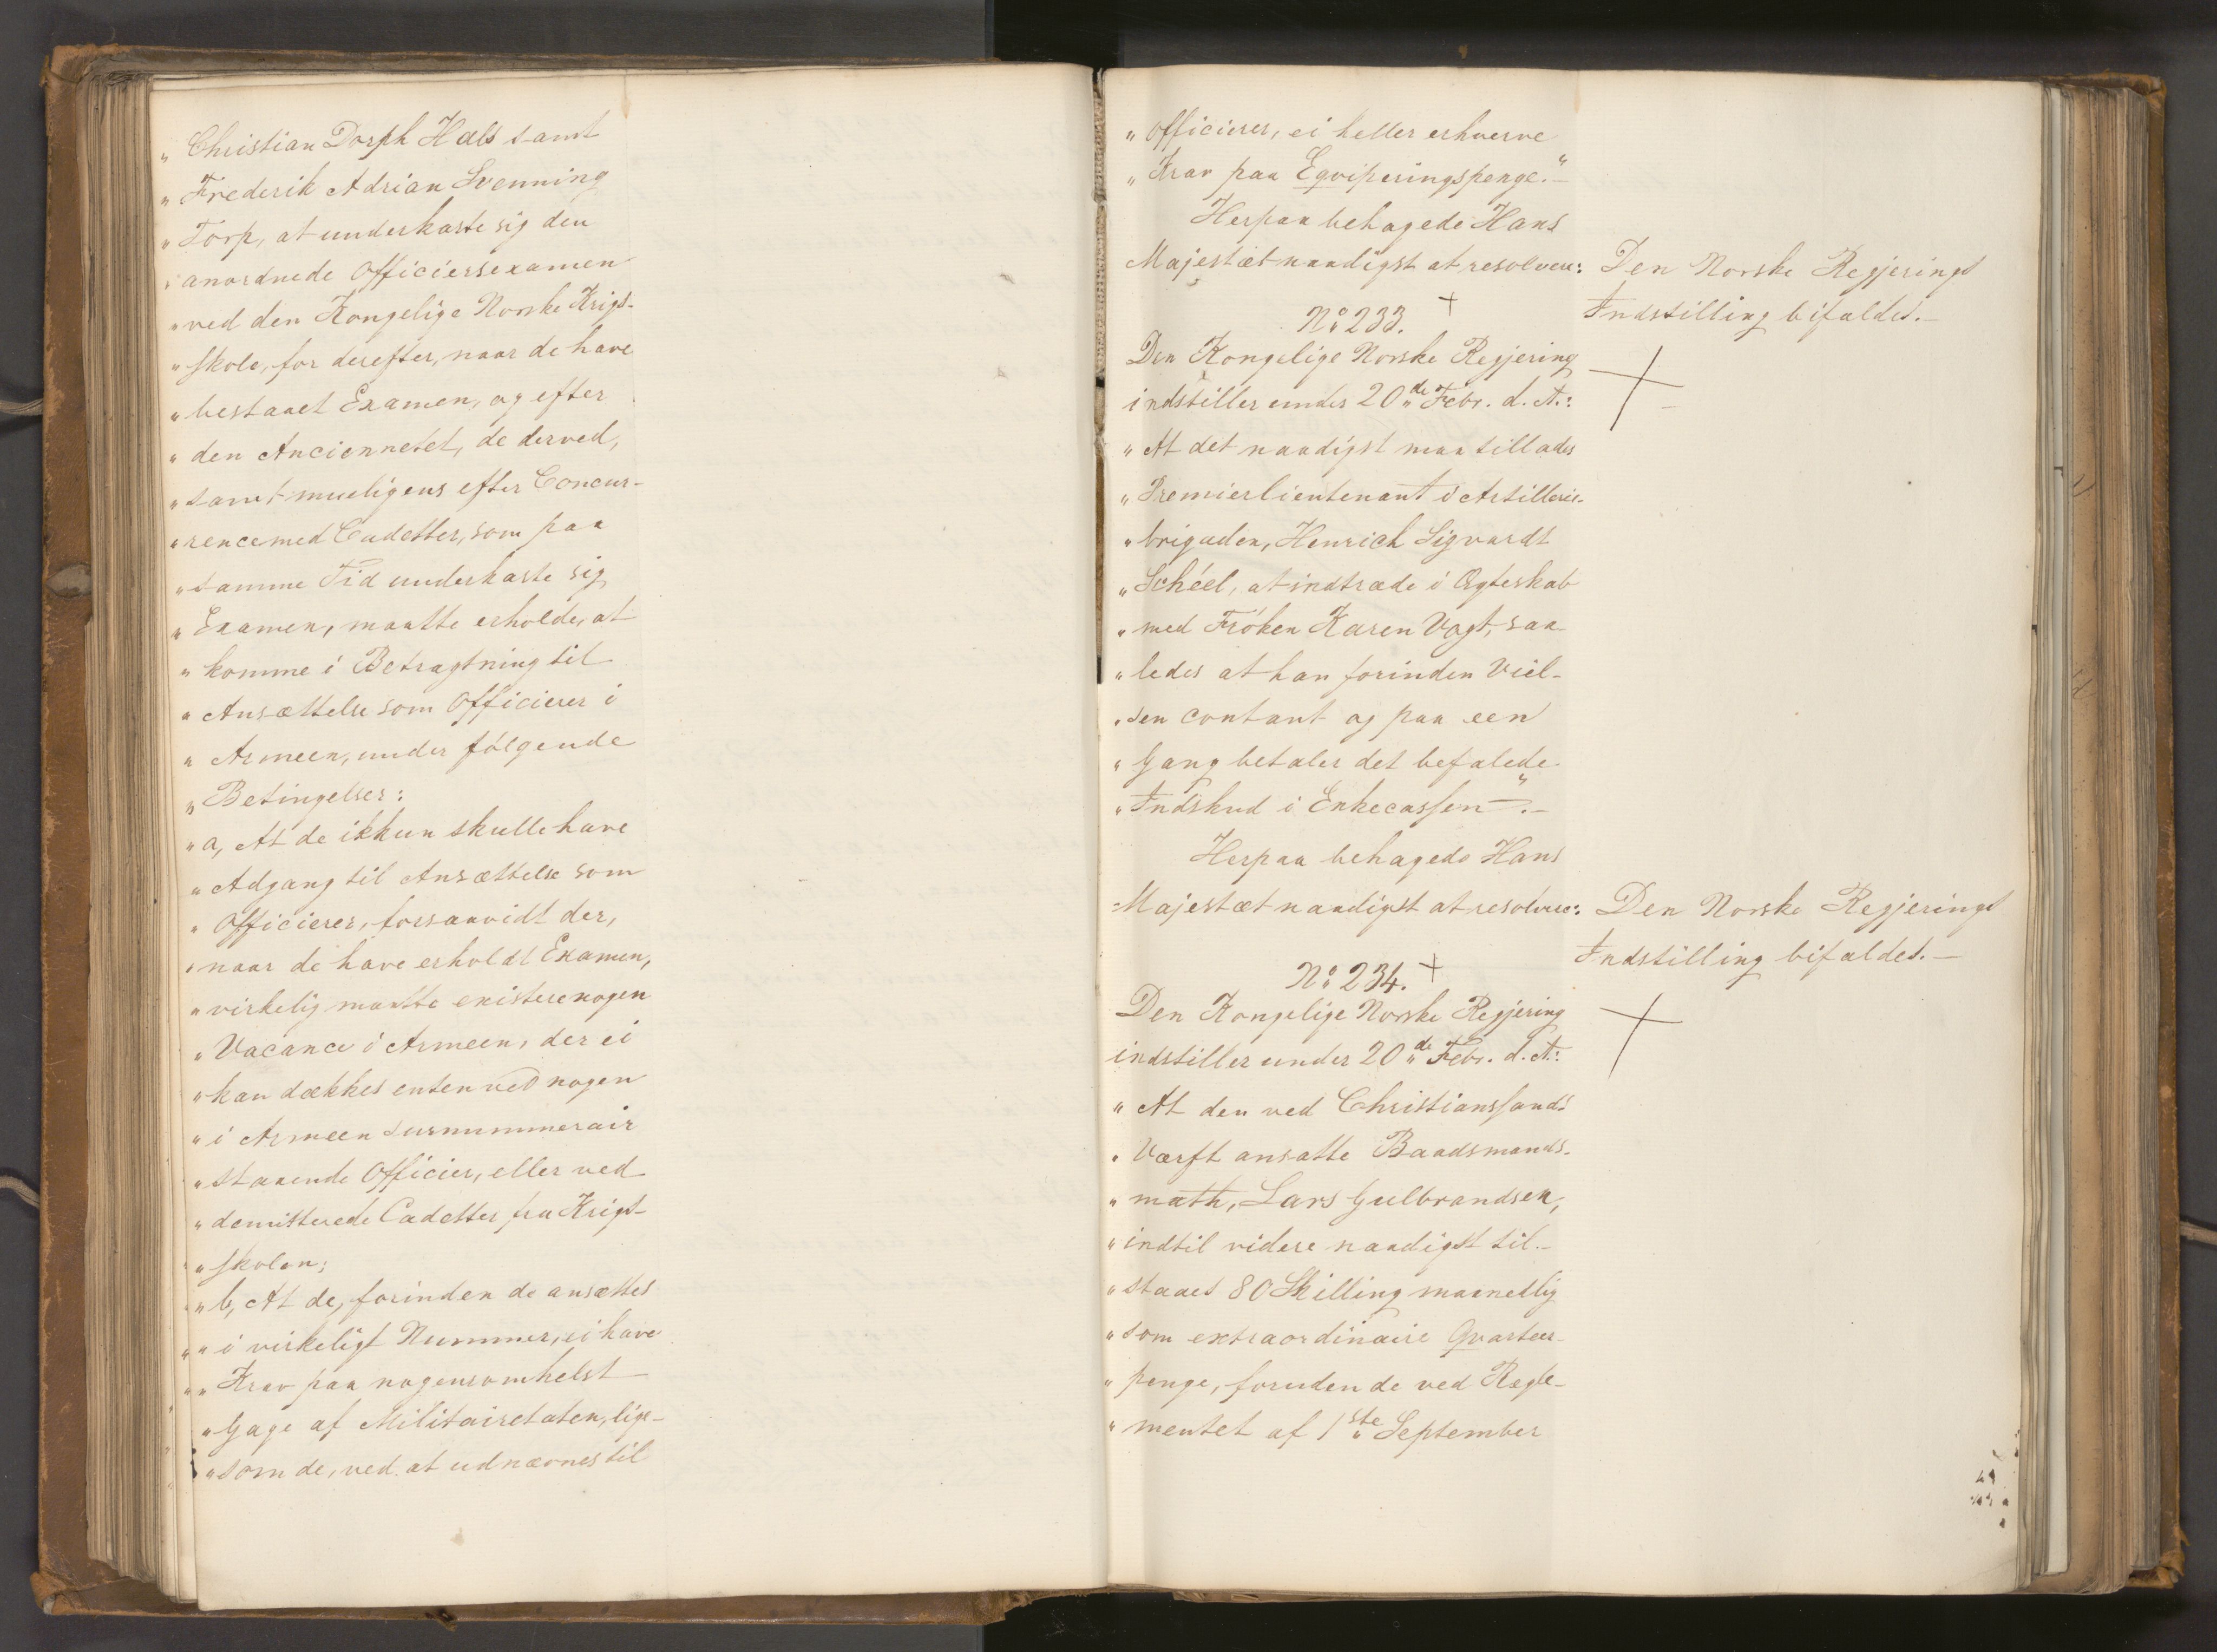 „ Christian Dorph Hals samt
„ Frederik Adrian Svenning
„ Torp, at underkaste sig den
„ anordnede Officiersexamen
„ ved den Kongelige Norske Krigs-
„ skole, for derefter, naar de have
„ bestaaet Examen, og efter
„ den Anciennetet, de derved,
„ samt mueligens efter Concur-
„ rence med Cadetter, som paa
„ samme Tid underkaste sig
„ Examen, maatte erholde, at
„ komme i Betragtning til
„ Ansættelse som Officierer i
„ Armeen, under følgende
„ Betingelser:
„ a, At de ikkun skulle have
„ Adgang til Ansættelse som
„ Officierer, forsaavidt der,
„ naar de have erholdt Examen,
„ virkelig maatte existere nogen
„ Vacance i Armeen, der ei
„ kan dækkes enten ved nogen
„ i Armeen surnummerair
„ staaende Officier, eller ved
„ demitterede Cadetter fra Krigs-
„ skolen;
„ b, At de, forinden de ansættes
„ i virkeligt Nummer, ei have
„ Krav paa nogensomhelst
„ Gage af Militairetaten, lige-
„ som de, ved at udnævnes til
„ Officierer, ei heller erhverve
„ Krav paa Eqviperingspenge.“ -
Herpaa behagede Hans
Majestæt naadigst at resolvere:
Den Norske Regjerings
Indstilling bifaldes. -
No 233. +
Den Kongelige Norske Regjering
indstiller under 20de Febr. d. A.:
„ At det naadigst maa tillades
„ Premierlieutenant i Artillerie-
„ brigaden, Henrich Sigvardt
„ Schéel, at indtræde i Ægteskab
„ med Frøken Karen Vogt, saa-
„ ledes at han forinden Viel-
„ sen contant og paa een
„ Gang betaler det befalede
„ Indskud i Enkecassen“. -
Herpaa behagede Hans
Majestæt naadigst at resolvere:
Den Norske Regjerings
Indstilling bifaldes. -
No 234. +
Den Kongelige Norske Regjering
indstiller under 20de Febr. d. A.:
„ At den ved Christianssands
„ Værft ansatte Baadsmands-
„ math, Lars Gulbrandsen,
„ indtil videre naadigst til-
„ staaes 80 Skilling maanedlig
„ som extraordinaire Qvarteer-
„ penge, foruden de ved Regle-
„ mentet af 1ste September